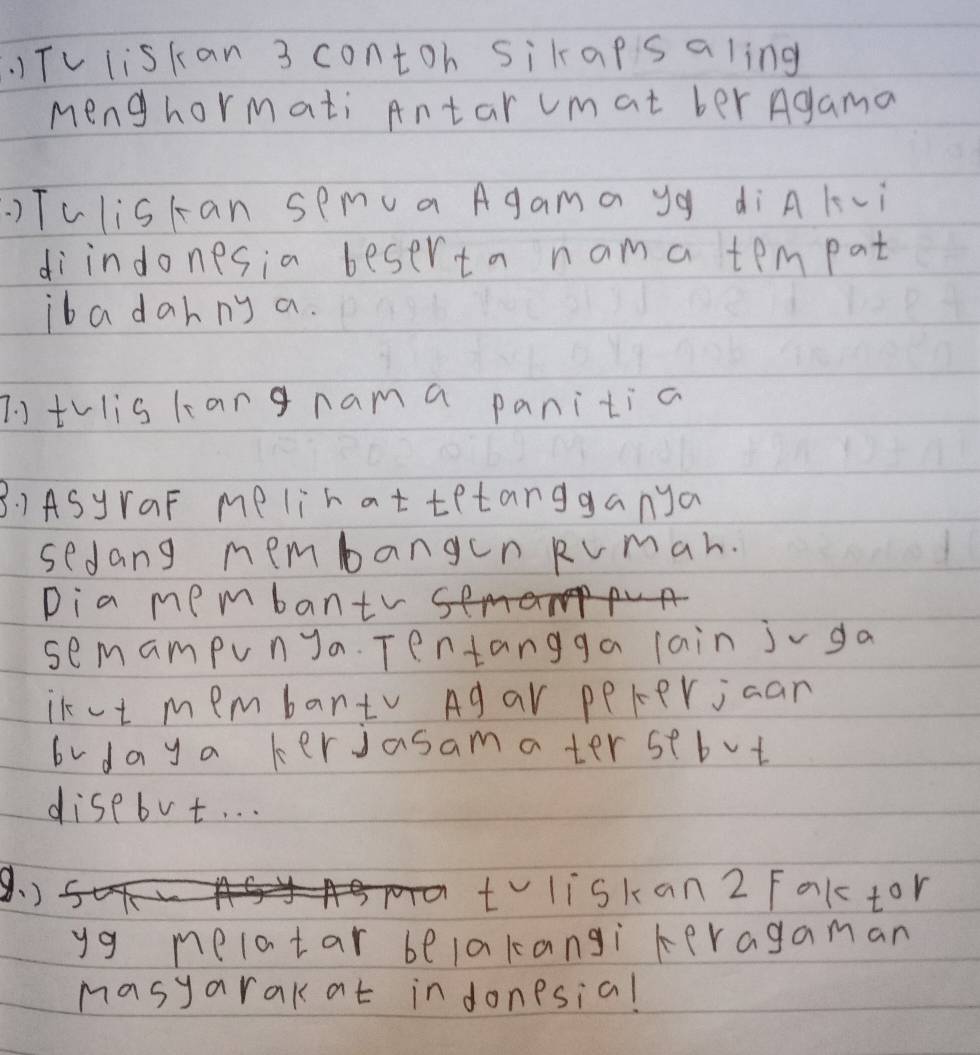 .) Tuliskan 3 contoh sikap saling
Menghormati Antar umat ber Agama
.) Tuliskan semua Agama yg diAkui
di indonesia beserta nama tempat
ibadahnya.
7.) tuliskang nama panitia
8.) Asyraf Melihat tetangganya
sedang membangun Rumah.
Dia membantu
semampunya. Tentangga lain juga
ikut membantu Agar pekerjaan
budaya kerjasama tersebut
disebut...
9.) tuliskan 2 Faktor
yg melatar belakangi keragaman
Masyarakat indonesia!